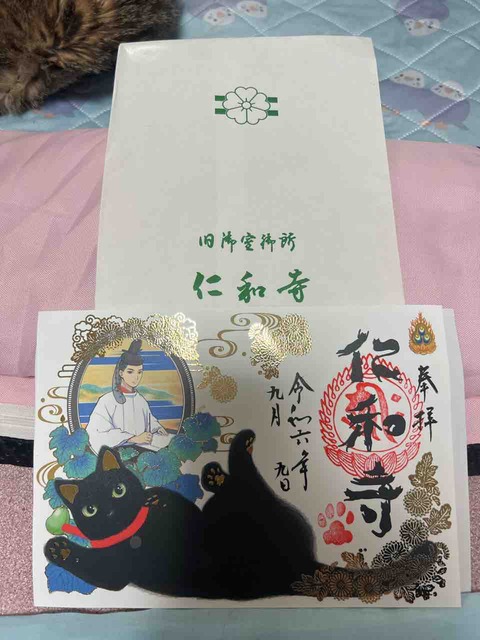 旧御室御所
仁和寺
奉拝
仁和寺
令和六年
九月九日